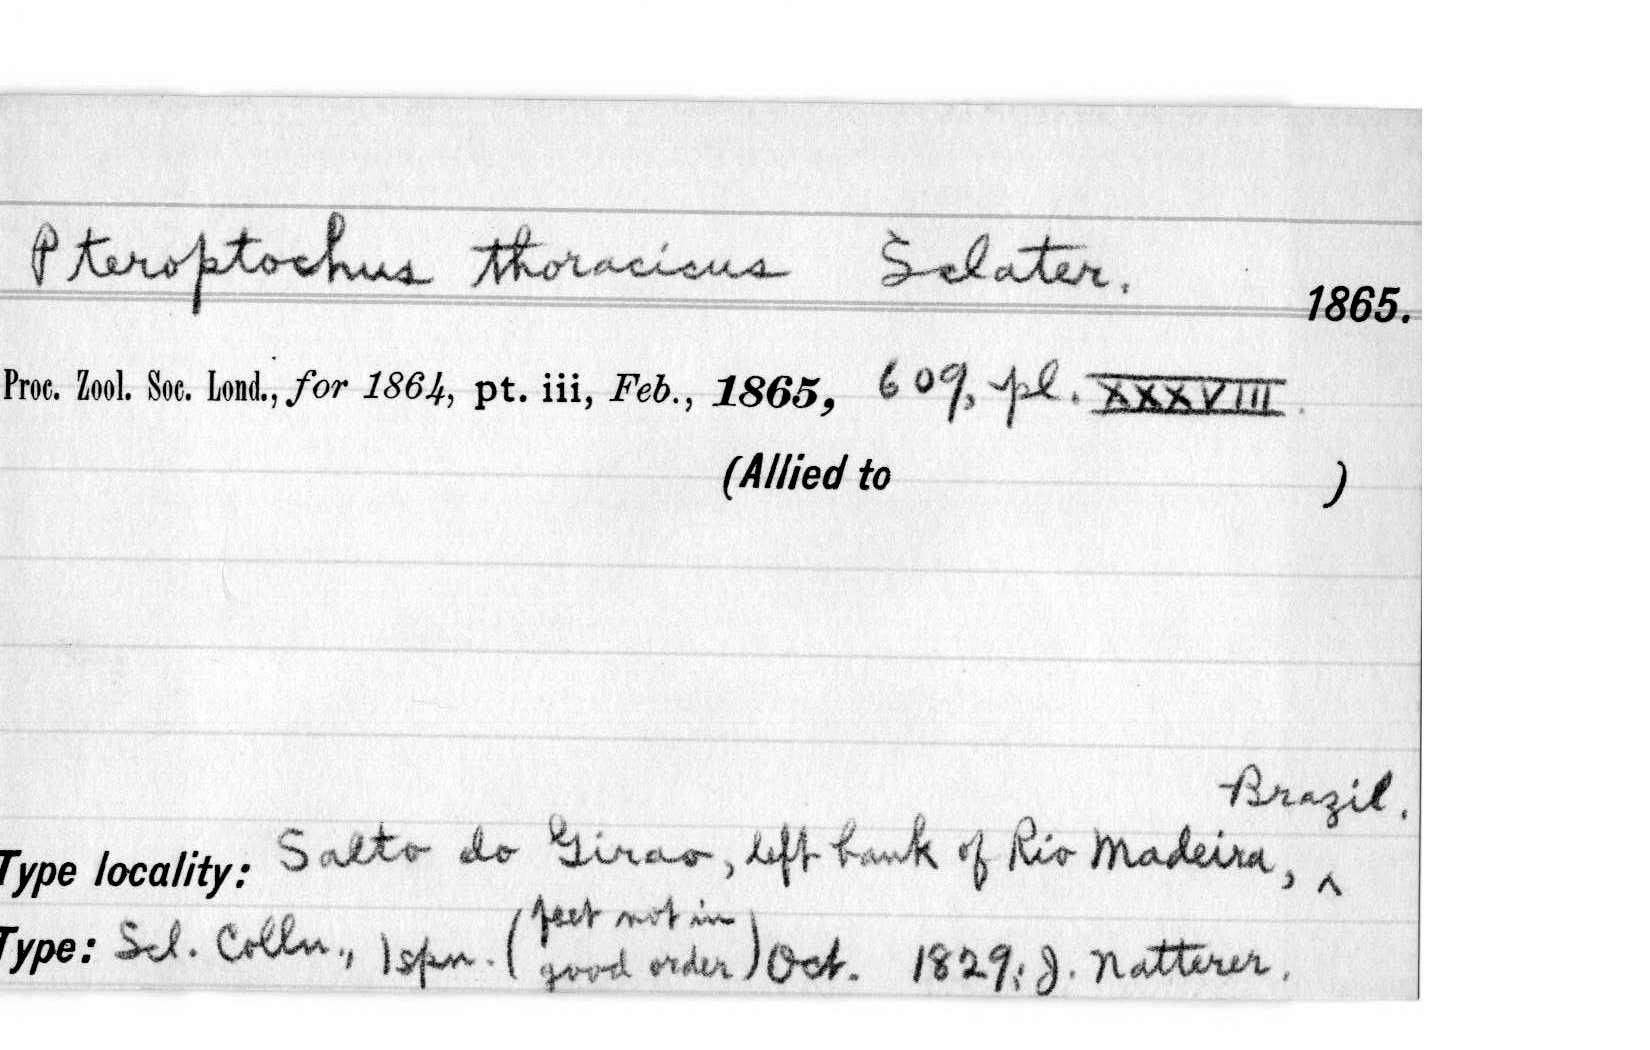 Pteroptochus thoracicus Sclater.
1865.
Proc. Zool. Soc. Lond., for 1864, pt. iii, Feb., 1865, 609, pl. XXXVIII.
(Allied to )
Brazil.
Type locality: Salto do Girao, left bank of Rio Madeira, ^
Type: Scl. Colln., 1 spn. (feet not in good order) Oct. 1829; J. Natterer.